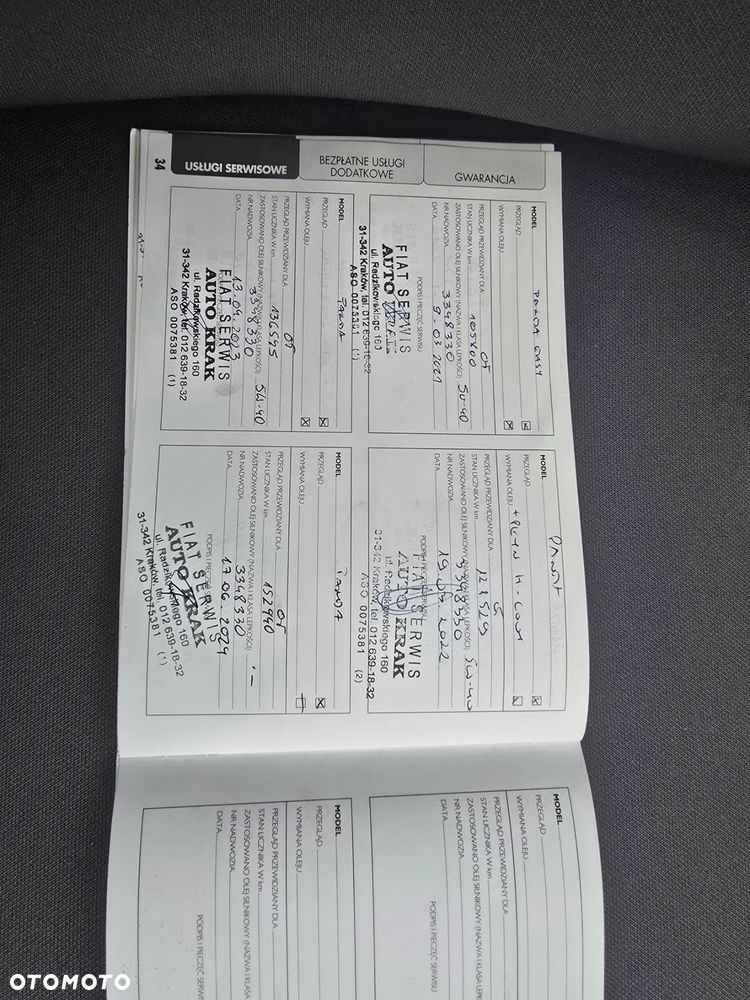 34
USŁUGI SERWISOWE
BEZPŁATNE USŁUGI
DODATKOWE
GWARANCJA
MODEL PANDA EASY
PRZEGLĄD
WYMIANA OLEJU
PRZEGLĄD PRZEWIDZIANY DLA
STAN LICZNIKA W km 105800
ZASTOSOWANO OLEJ SILNIKOWY (NAZWA I KLASA LEPKOŚCI) 5W-40
NR NADWOZIA 3348330
DATA 9.03.2021
PODPIS I PIECZĘĆ SERWISU
FIAT SERWIS
AUTO KRAK
ul. Radzikowskiego 160
31-342 Kraków, tel. 012 639-18-32
ASO 0075381 (1)
MODEL
PRZEGLĄD
WYMIANA OLEJU + PŁYN H-COW
PRZEGLĄD PRZEWIDZIANY DLA
STAN LICZNIKA W km 121529
ZASTOSOWANO OLEJ SILNIKOWY (NAZWA I KLASA LEPKOŚCI) 5W-40
NR NADWOZIA 3348330
DATA 2022
PODPIS I PIECZĘĆ SERWISU
FIAT SERWIS
AUTO KRAK
ul. Radzikowskiego 160
31-342 Kraków, tel. 012 639-18-32
ASO 0075381 (2)
MODEL PANDA
PRZEGLĄD
WYMIANA OLEJU
PRZEGLĄD PRZEWIDZIANY DLA
STAN LICZNIKA W km 136545
ZASTOSOWANO OLEJ SILNIKOWY (NAZWA I KLASA LEPKOŚCI) 5W-40
NR NADWOZIA 3348330
DATA 13.04.2023
FIAT SERWIS
AUTO KRAK
ul. Radzikowskiego 160
31-342 Kraków, tel. 012 639-18-32
ASO 0075381 (1)
MODEL PANDA
PRZEGLĄD
WYMIANA OLEJU
PRZEGLĄD PRZEWIDZIANY DLA
STAN LICZNIKA W km 152940
ZASTOSOWANO OLEJ SILNIKOWY (NAZWA I KLASA LEPKOŚCI)
NR NADWOZIA 3348330
DATA 17.06.2024
PODPIS I PIECZĘĆ SERWISU
FIAT SERWIS
AUTO KRAK
ul. Radzikowskiego 160
31-342 Kraków, tel. 012 639-18-32
ASO 0075381 (1)
MODEL
PRZEGLĄD
WYMIANA OLEJU
PRZEGLĄD PRZEWIDZIANY DLA
STAN LICZNIKA W km
ZASTOSOWANO OLEJ SILNIKOWY (NAZWA I KLASA
NR NADWOZIA
DATA
PODPIS I PIECZĘĆ SERWISU
MODEL
PRZEGLĄD
WYMIANA OLEJU
PRZEGLĄD PRZEWIDZIANY DLA
STAN LICZNIKA W km
ZASTOSOWANO OLEJ SILNIKOWY (NAZWA I KLASA LEP
NR NADWOZIA
DATA
PODPIS I PIECZĘĆ SERWIS
OTOMOTO